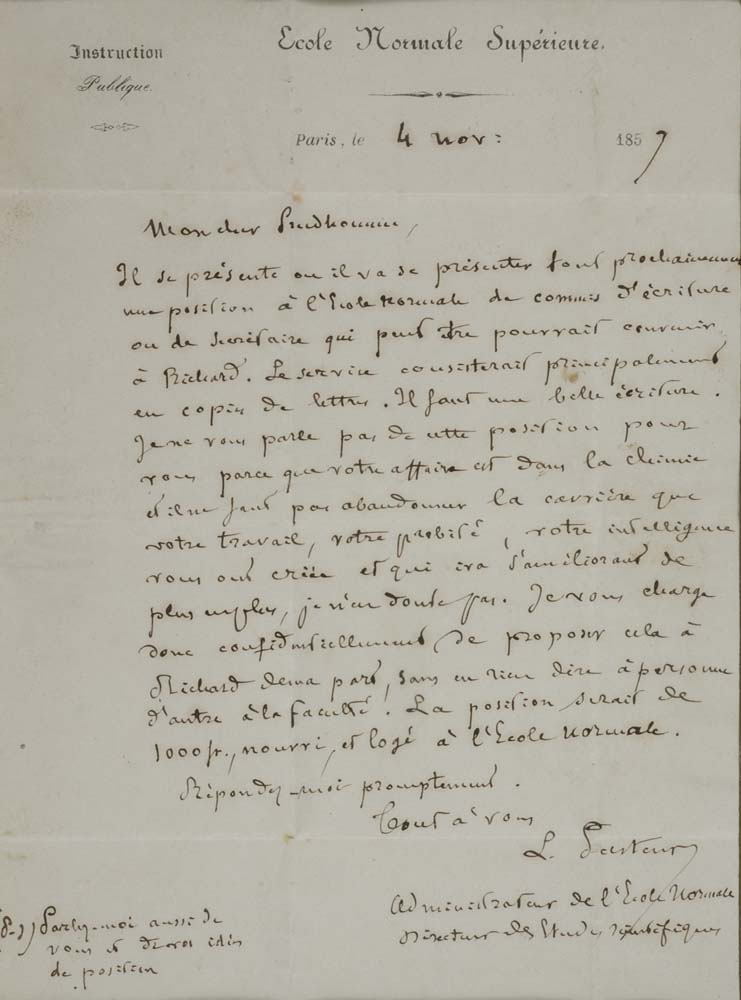 Instruction
Publique.
Ecole Normale Supérieure.
Paris, le 4 nov: 1857
Monsieur Prudhomme,
Il se présente ou il va se présenter tout prochainement
une position à l'Ecole Normale de commis d'écriture
ou de secrétaire qui peut être pourrait convenir
à Richard. Le service consisterait principalement
en copies de lettres. Il faut une belle écriture.
Je ne vous parle pas de cette position pour
vous parce que votre affaire est dans la chimie
et il ne faut pas abandonner la carrière que
votre travail, votre probité, votre intelligence
vous ont créée et qui ira s'améliorant de
plus en plus, je n'en doute pas. Je vous charge
donc confidentiellement de proposer cela à
Richard de ma part, sans en rien dire à personne
d'autre à la faculté. La position serait de
1000 fr., nourri, et logé à l'Ecole Normale.
Répondez-moi promptement.
Tout à vous
L. Pasteur
Administrateur de l'Ecole Normale
Directeur des Etudes scientifiques
Parlez-moi aussi de
vous et de vos idées
de position